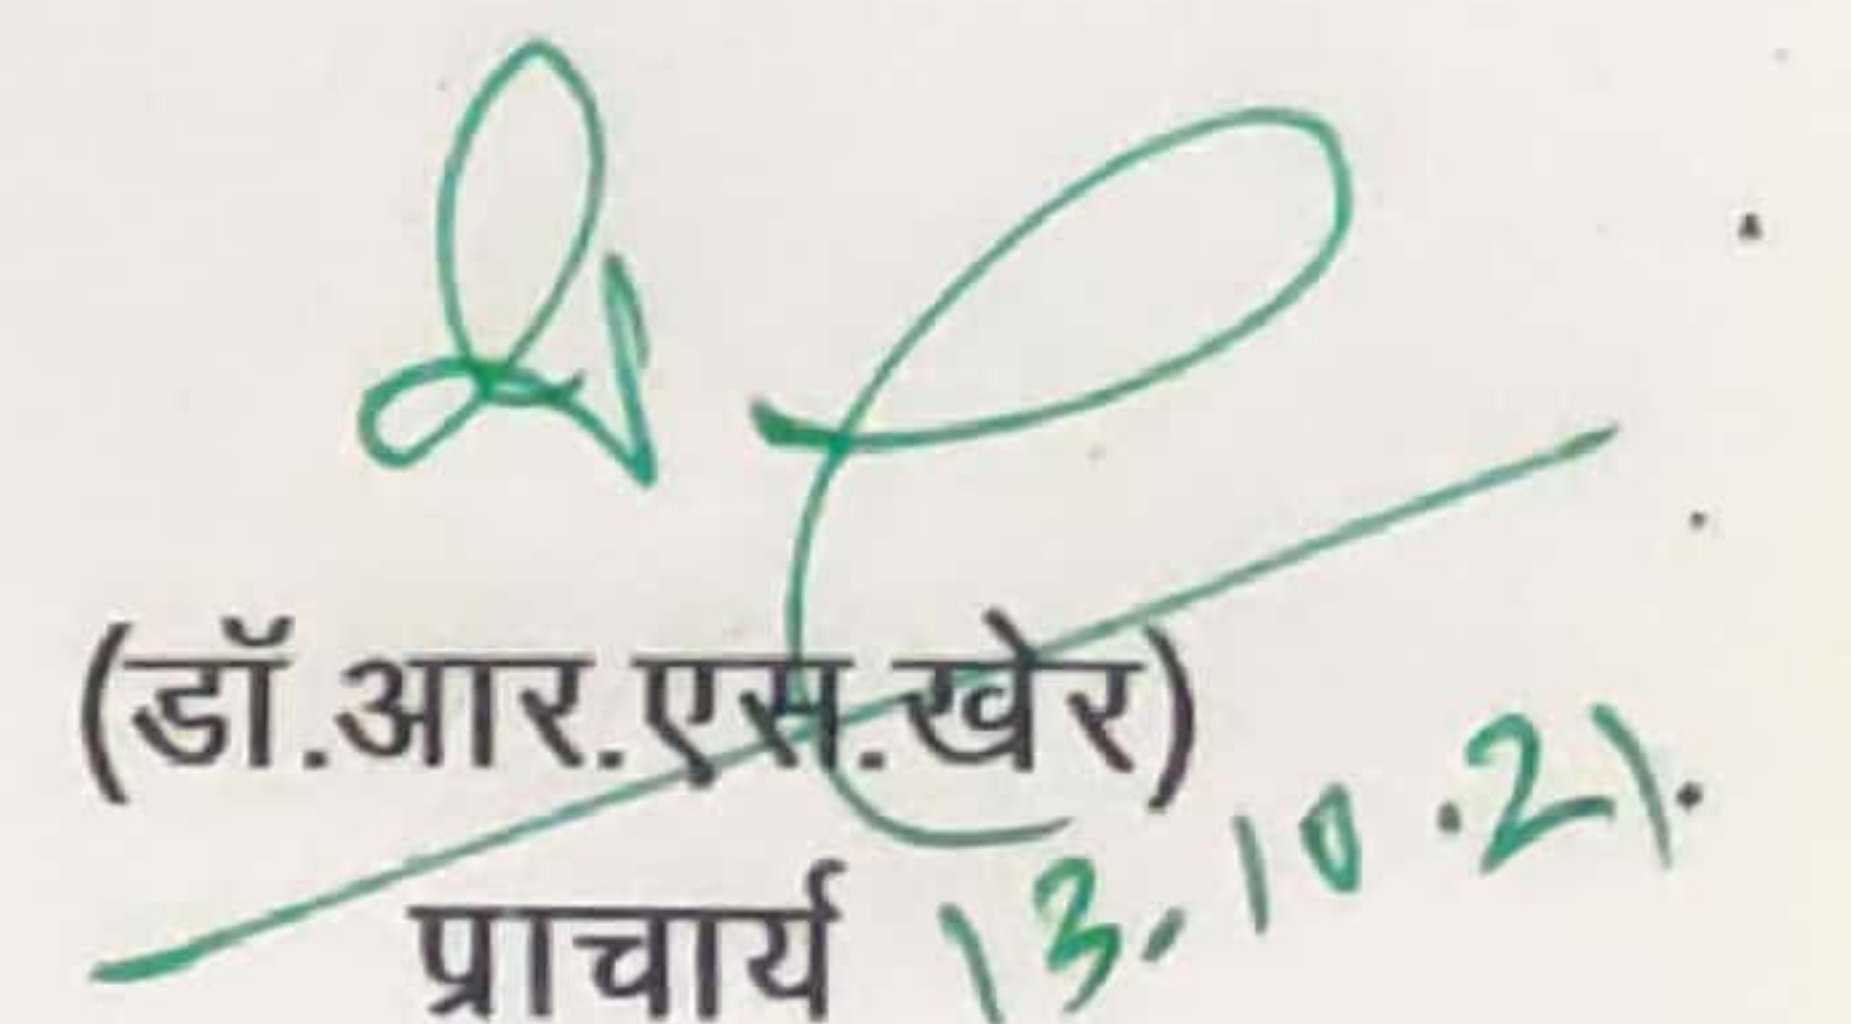 (डॉ.आर.एस.खेर)
प्राचार्य 13.10.21.